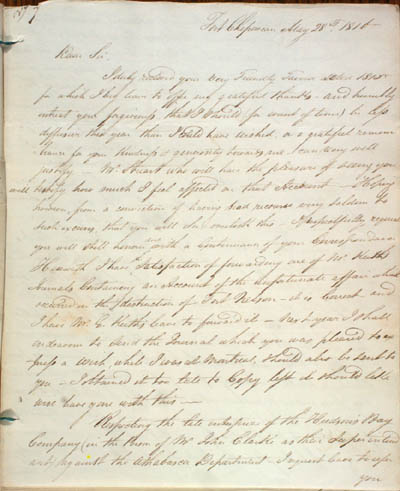 Fort Chipewean May 28th 1816
Dear Sir,
I duly received your very Friendly Favor dated 1815
for which I beg leave to offer my grateful thanks - and humbly
intreat your forgiveness that I should for want of time be less
diffusive this year than I could have wished, or a grateful remem-
brance for your kindness & generosity towards me I can very well
justify - Mr. Stuart who will have the pleasure of seeing you
will testify how much I feel affected on that account - Hoping
however, from a conviction of having had recourse very seldom to
such excuses that you will overlook this - I respectfully request
you will still honour me with a continuance of your Correspondence
Herewith I have satisfaction of forwarding one of Mr. Keith's
Journals Containing an Account of the Unfortunate affair which
occured in the destruction of Fort Nelson - it is Correct and
I have Mr. G. Keith's leave to forward it - Next year I shall
endeavour to send the Journal which you was pleased to ex-
press a wish, while I was at Montreal, should also be sent to
you - I obtained it too late to Copy left it should like-
wise have gone with this -
Respecting the late enterprise of the Hudson's Bay
Company (in the Person of Mr. John Clarke as their Superintend
ant) against the Athabasca Department - I request leave to refer
you